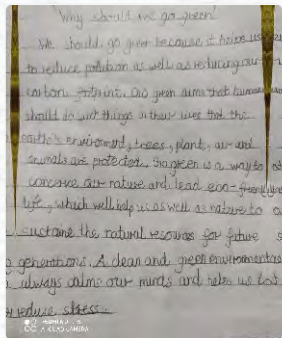 Why should we go green
We should go green because it helps us
to reduce pollution as well as reducing our
carbon footprint. Go green aims that human
should do such things in their lives that the
earth's environment, trees, plant, air and
animals are protected. Go green is a way to
conserve our nature and lead eco-friendly
life, which will help us as well as nature to
sustaine the natural resources for future
generations. A clean and green environment
always calms our minds and helps us to
reduce stress.